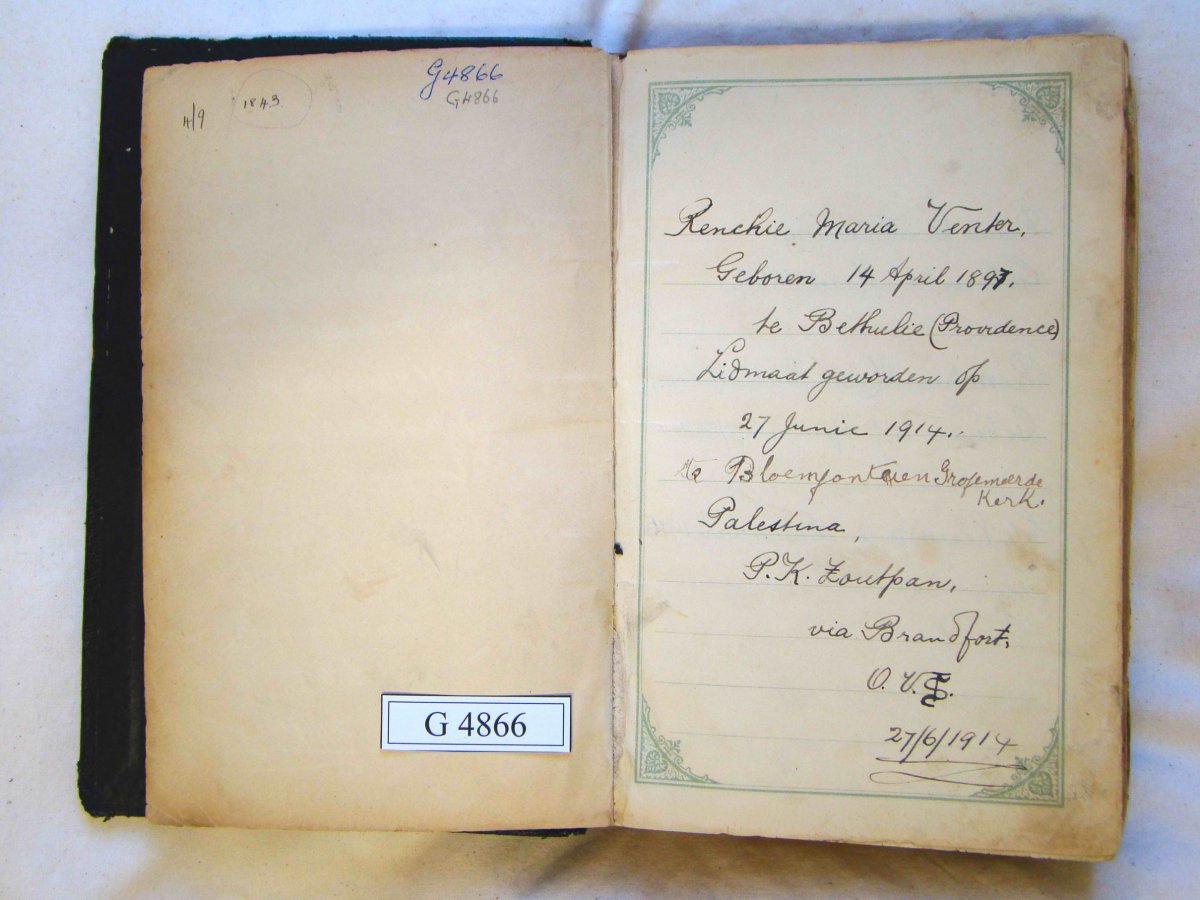 4/9
1843
G4866
G4866
G 4866
Renchie Maria Venter,
Geboren 14 April 1897.
te Bethulie (Providence)
Lidmaat geworden op
27 Junie 1914.
te Bloemfontein
Kerk.
Palestina,
P.K. Zoutpan,
via Brandfort,
O.V.S.
27/6/1914